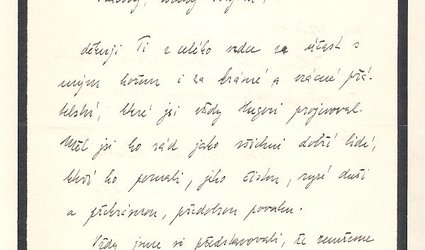 děkuji Ti z celého srdce za účast s
mým hořem i za krásné a vzácné přá-
telství, které jsi vždy Hugovi projevoval.
Měl jsi ho rád jako všichni dobří lidé,
kteří ho poznali, jeho čistou, ryzí duši
a překrásnou, předobrou povahu.
Vždy jsme si představovali, že